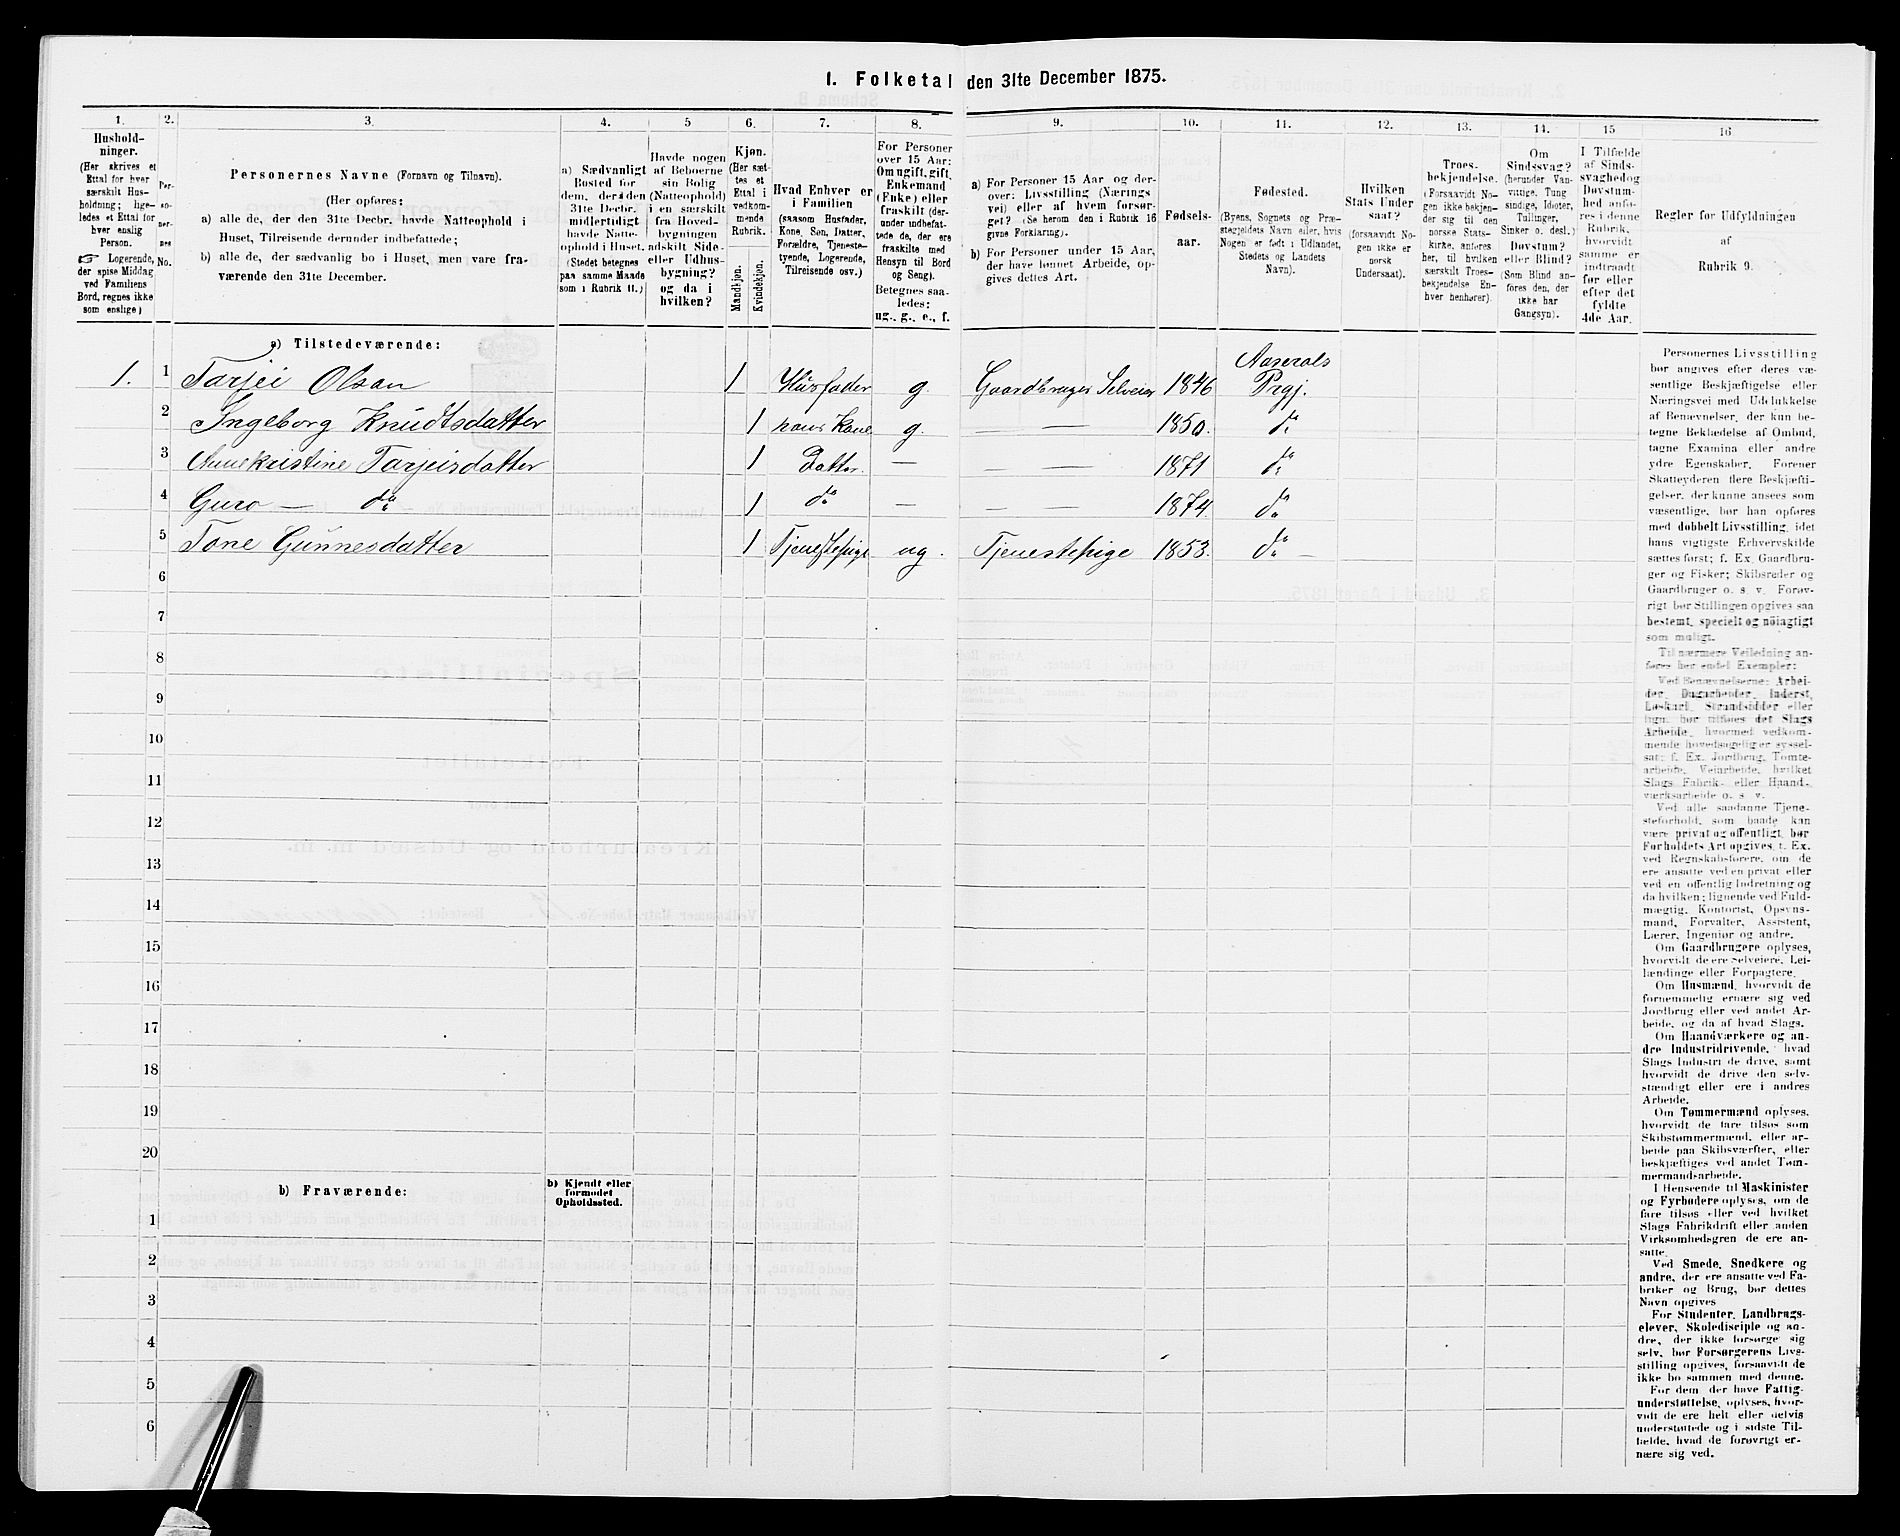 1. Folketal den 31te December 1875.
1. 2. 3. 4. 5 6. 7. 8. 9. 10. 11. 12. 13. 14. 15 16
Hushold-
ninger.
(Her skrives et
Ettal for hver
særskilt Hus-
holdning; lige-
ledes et Ettal for
hver enslig
Person.
☞ Logerende,
der spise Middag
ved Familiens
Bord, regnes ikke
som enslige)
Per-
so-
ner-
nes
No.
Personernes Navne (Fornavn og Tilnavn).
(Her opføres:
a) alle de, der den 31te Decbr. havde Natteophold i
Huset, Tilreisende derunder indbefattede;
b) alle de, der sædvanlig bo i Huset, men vare fra-
værende den 31te December.
a) Sædvanligt
Bosted for
dem, der den
31te Decbr.
midlertidigt
havde Natte-
ophold i Huset.
(Stedet betegnes
paa samme Maade
som i Rubrik 11.)
Havde nogen
af Beboerne
sin Bolig
(Natteophold)
i en særskilt
fra Hoved-
bygningen
adskilt Side-
eller Udhus-
bygning?
og da i
hvilken?
Kjøn.
(Her sæt-
tes et
Ettal i
vedkom-
mende
Rubrik.
Mandkjøn.
Kvindekjøn.
Hvad Enhver er
i Familien
(saasom Husfader,
Kone, Søn, Datter,
Forældre, Tjeneste-
tyende, Logerende,
Tilreisende osv.)
For Personer
over 15 Aar:
Om ugift, gift,
Enkemand
(Enke) eller
fraskilt (der-
under indbefat-
tede de, der ere
fraskilte med
Hensyn til Bord
og Seng).
Betegnes saa-
ledes:
ug., g., e., f.
a) For Personer 15 Aar og der-
over: Livsstilling (Nærings
vei) eller af hvem forsør-
get? (Se herom den i Rubrik 16
givne Forklaring).
b) For Personer under 15 Aar,
der have lønnet Arbeide, op-
gives dettes Art.
Fødsels-
aar.
Fødested.
(Byens, Sognets og Præ-
stegjeldets Navn eller, hvis
Nogen er født i Udlandet,
Stedets og Landets
Navn).
Hvilken
Stats Under
saat?
(forsaavidt No-
gen ikke er
norsk
Undersaat).
Troes-
bekjendelse.
(Forsaavidt No-
gen ikke bekjen-
der sig til den
norske Stats-
kirke, anføres
her, til hvilken
særskilt Troes-
bekjendelse En-
hver henhører).
Om
Sindssvag?
(herunder Van-
vittige, Tung
sindige, Idioter,
Tullinger,
Sinker o. desl.)
Døvstum?
eller Blind?
(Som Blind an-
føres den, der
ikke har
Gangsyn).
I Tilfælde
af Sinds-
svaghed og
Døvstum-
hed anfø-
res i denne
Rubrik,
hvorvidt
samme er
indtraadt
før eller
efter det
fyldte
4de Aar.
Regler for Udfyldningen
af
Rubrik 9.
a) Tilstedeværende:
1. 1 Tarjei Olsen 1 Husfader g. Gaardbruger Selveier 1846 Aaserals
Prgj.
2 Ingeborg Knudtsdatter 1 hans Kone g. — — 1850. do
3 Annekristine Tarjeisdatter 1 Datter — — — 1871 do
4 Guro — do 1 do — — — 1874. do
5 Tone Gunnesdatter 1 Tjenestepige ug. Tjenestepige 1853. do —
6
7
8
9
10
11
12
13
14
15
16
17
18
19
20
b) Fraværende:
b) Kjendt eller
formodet
Opholdssted.
1
2
3
4
5
6
Personernes Livsstilling
bør angives efter deres væ-
sentlige Beskjæftigelse eller
Næringsvei med Udelukkelse
af Benævnelser, der kun be-
tegne Beklædelse af Ombud,
tagne Examina eller andre
ydre Egenskaber. Forener
Skatteyderen flere Beskjæfti-
gelser, der kunne ansees som
væsentlige, bør han opføres
med dobbelt Livsstilling, idet
hans vigtigste Erhvervskilde
sættes først; f. Ex. Gaardbru-
ger og Fisker; Skibsreder og
Gaardbruger o. s. v. Forøv-
rigt bør Stillingen opgives saa
bestemt, specielt og nöiagtigt
som muligt.
Til nærmere Veiledning an-
føres her endel Exempler:
Ved Benævnelserne: Arbei-
der, Dagarbeider, Inderst,
Løskarl, Strandsidder eller
lign. bør tilføies det Slags
Arbeide, hvormed vedkom-
mende hovedsagelig er syssel-
sat; f. Ex. Jordbrug, Tomte-
arbeide, Veiarbeide, hvilket
Slags Fabrik- eller Haand-
værksarbeide o. s. v.
Ved alle saadanne Tjene-
steforhold, som baade kan
være privat og offentligt, bør
Forholdets Art opgives, t. Ex.
ved Regnskabsførere, om de
ere ansatte ved en privat eller
ved en offentlig Indretning og
da hvilken; lignende ved Fuld-
mægtig, Kontorist, Opsyns-
mand, Forvalter, Assistent,
Lærer, Ingeniør og andre.
Om Gaardbrugere oplyses,
hvorvidt de ere Selveiere, Lei-
lændinge eller Forpagtere.
Om Husmænd, hvorvidt de
fornemmelig ernære sig ved
Jordbrug eller ved andet Ar-
beide, og da af hvad Slags.
Om Haandværkere og an-
dre Industridrivende, hvad
Slags Industri de drive, samt
hvorvidt de drive den selv-
stændigt eller ere i andres
Arbeide.
Om Tømmermænd oplyses,
hvorvidt de fare tilsøs som
Skibstømmermænd, eller ar-
beide paa Skibsværfter, eller
beskjæftiges ved andet Tøm-
mermandsarbeide.
I Henseende til Maskinister
og Fyrbødere oplyses, om de
fare tilsøs eller ved hvilket
Slags Fabrikdrift eller anden
Virksomhedsgren de ere an-
satte.
Ved Smede, Snedkere og
andre, der ere ansatte ved Fa-
briker og Brug, bør dettes
Navn opgives
For Studenter, Landbrugs-
elever, Skoledisciple og an-
dre, der ikke forsørge sig
selv, bør Forsørgerens Livs-
stilling opgives, forsaavidt de
ikke bo sammen med denne.
For dem, der have Fattig-
understøttelse, oplyses, hvor-
vidt de ere helt eller delvis
understøttede og i sidste Til-
fælde, hvad de forøvrigt er-
nære sig ved.